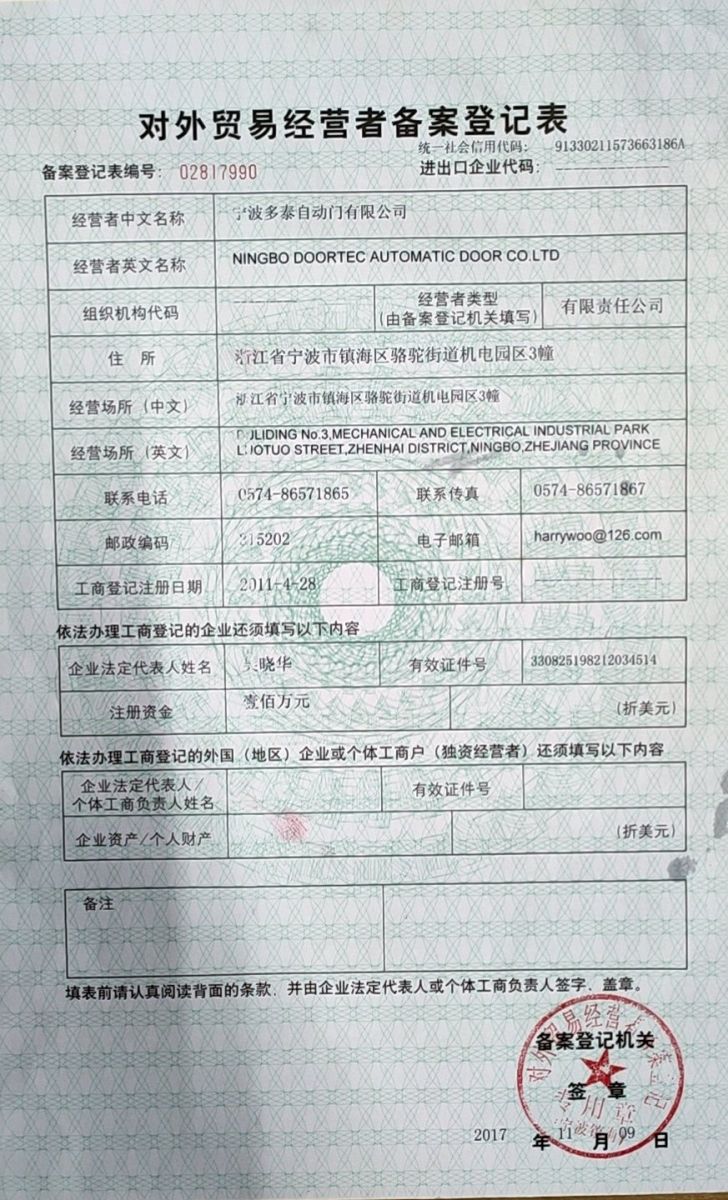 对外贸易经营者备案登记表
统一社会信用代码: 91330211573663186A
备案登记表编号: 02817990
进出口企业代码:
经营者中文名称 宁波多泰自动门有限公司
经营者英文名称 NINGBO DOORTEC AUTOMATIC DOOR CO.LTD
组织机构代码 经营者类型 (由备案登记机关填写) 有限责任公司
住 所 浙江省宁波市镇海区骆驼街道机电园区3幢
经营场所（中文） 浙江省宁波市镇海区骆驼街道机电园区3幢
经营场所（英文） No.3,MECHANICAL AND ELECTRICAL INDUSTRIAL PARK
STREET,ZHENHAI DISTRICT,NINGBO,ZHEJIANG PROVINCE
联系电话 0574-86571865 联系传真 0574-86571867
邮政编码 315202 电子邮箱 harrywoo@126.com
工商登记注册日期 2011-4-28 工商登记注册号
依法办理工商登记的企业还须填写以下内容
企业法定代表人姓名 晓华 有效证件号 330825198212034514
注册资金 壹佰万元 (折美元)
依法办理工商登记的外国（地区）企业或个体工商户（独资经营者）还须填写以下内容
企业法定代表人/
个体工商负责人姓名 有效证件号
企业资产/个人财产 (折美元)
备注
填表前请认真阅读背面的条款，并由企业法定代表人或个体工商负责人签字、盖章。
对外贸易经营者
备案登记机关
签 章
专用章
2017 年 11 月 09 日